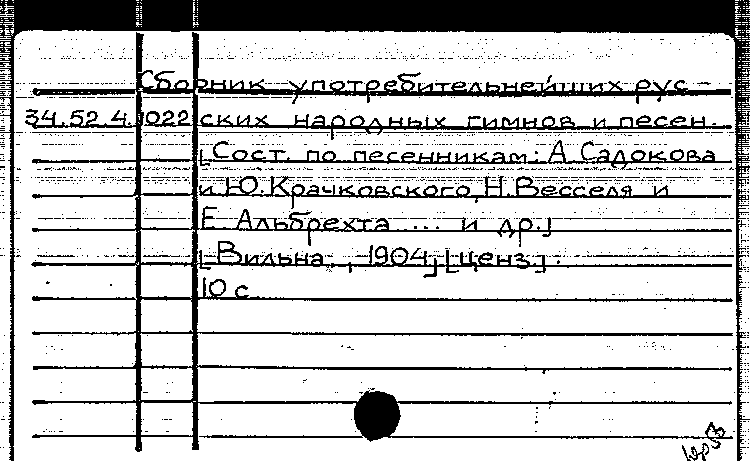 Сборник употребительнейших рус-
34.52.4.1022 ских народных гимнов и песен.
[Сост. по песенникам: А Садокова
и Ю. Крачковского, Н. Весселя и
Е. Альбрехта ... и др.]
[Вильна, 1904] [ценз.].
10 с